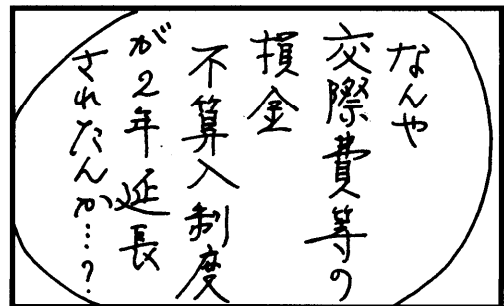 なんや
交際費等の
損金
不算入制度
が2年延長
されたんか…?